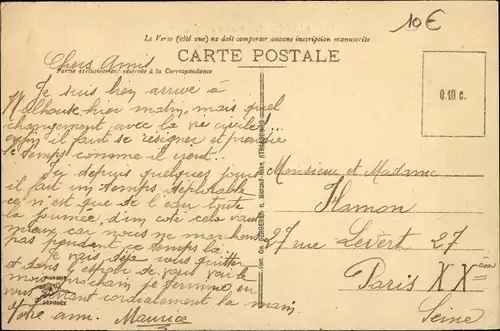 10€
Le Verso (côté vue) ne doit comporter aucune inscription manuscrite
CARTE POSTALE
Partie exclusivement réservée à la Correspondance
0.10 c.
Chers Amis
Je suis bien arrivé à
Mulhouse, hier matin, mais quel
changement avec la vie civile!...
enfin il faut se résigner et prendre
le temps comme il vient.
Ici depuis quelques jours
il fait un temps déplorable
ce n'est que de l'eau toute
la journée, d'un coté cela vaut
mieux car nous ne marchons
pas pendant ce temps là.
Je vais déjà vous quitter
et dans l'espoir de vous voir le
mois prochain je termine en
vous serrant cordialement la main
Votre ami. Maurice
MARQUE
DÉPOSÉE
Monsieur et Madame
Hamon
27 rue Levert 27
Paris XXème
Seine